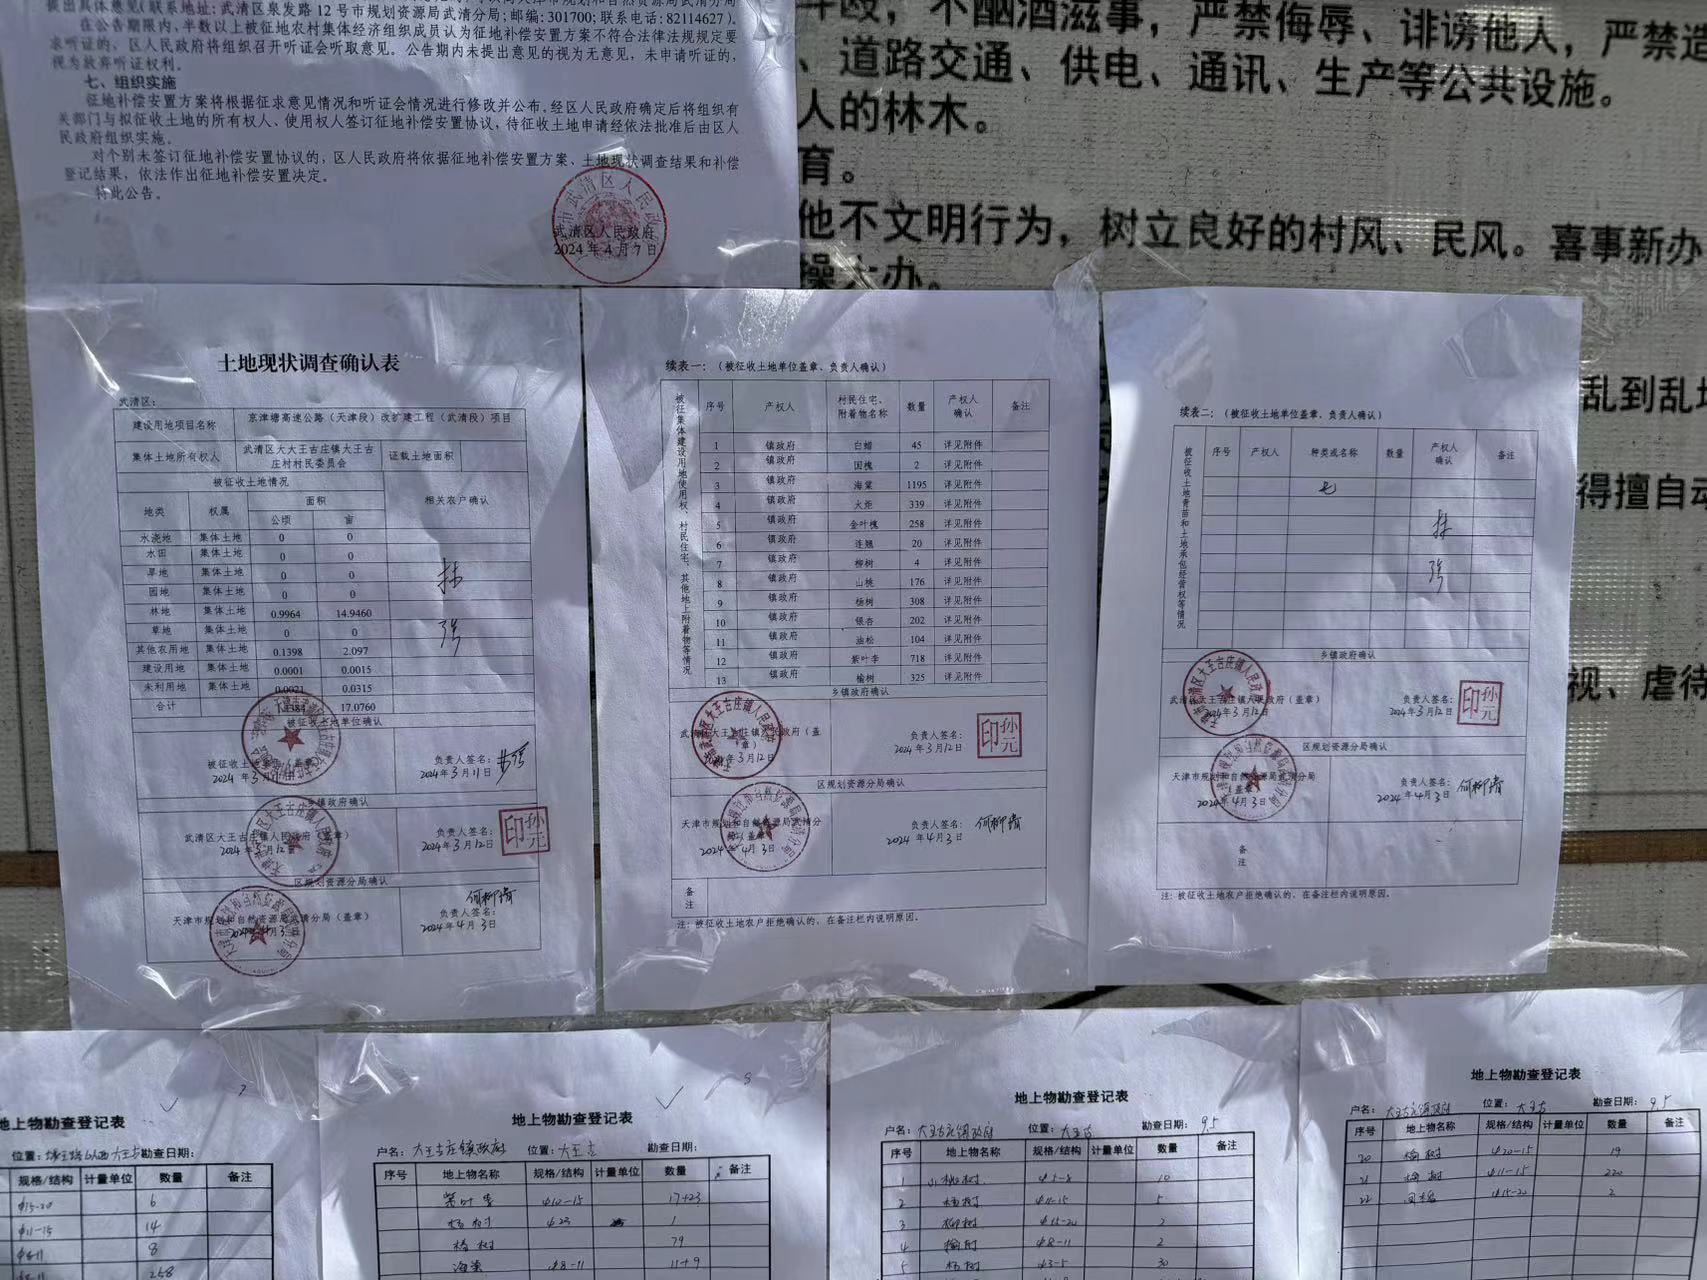 提出具体意见(联系地址:武清区泉发路12号市规划资源局武清分局;邮编:301700;联系电话:82114627)。
在公告期限内,半数以上被征地农村集体经济组织成员认为征地补偿安置方案不符合法律法规规定要
求听证的,区人民政府将组织召开听证会听取意见。公告期内未提出意见的视为无意见,未申请听证的,
视为放弃听证权利。
七、组织实施
征地补偿安置方案将根据征求意见情况和听证会情况进行修改并公布。经区人民政府确定后将组织有
关部门与拟征收土地的所有权人、使用权人签订征地补偿安置协议,待征收土地申请经依法批准后由区人
民政府组织实施。
对个别未签订征地补偿安置协议的,区人民政府将依据征地补偿安置方案、土地现状调查结果和补偿
登记结果,依法作出征地补偿安置决定。
特此公告。
武清区人民政府
2024年4月7日
斗殴,不酗酒滋事,严禁侮辱、诽谤他人,严禁造
、道路交通、供电、通讯、生产等公共设施。
人的林木。
育。
他不文明行为,树立良好的村风、民风。喜事新办
操大办。
乱到乱
得擅自
视、虐待
土地现状调查确认表
武清区:
建设用地项目名称 京津塘高速公路(天津段)改扩建工程(武清段)项目
集体土地所有权人 武清区大大王古庄镇大王古庄村村民委员会 证载土地面积
被征收土地情况 相关农户确认
地类 权属 面积
公顷 亩
水浇地 集体土地 0 0
水田 集体土地 0 0
旱地 集体土地 0 0
园地 集体土地 0 0
林地 集体土地 0.9964 14.9460
草地 集体土地 0 0
其他农用地 集体土地 0.1398 2.097
建设用地 集体土地 0.0001 0.0015
未利用地 集体土地 0.0021 0.0315
合计 1.1384 17.0760
被征收土地单位确认
被征收土地单位(盖章) 负责人签名:
2024年3月11日 2024年3月11日
乡镇政府确认
武清区大王古庄镇人民政府(盖章) 负责人签名:
2024年3月12日 2024年3月12日
孙元印
区规划资源分局确认
天津市规划和自然资源局武清分局(盖章) 负责人签名:
2024年4月3日 2024年4月3日
续表一:(被征收土地单位盖章、负责人确认)
被征集体建设用地使用权、村民住宅、其他地上附着物等情况
序号 产权人 村民住宅、附着物名称 数量 产权人确认 备注
1 镇政府 白蜡 45 详见附件
2 镇政府 国槐 2 详见附件
3 镇政府 海棠 1195 详见附件
4 镇政府 火炬 339 详见附件
5 镇政府 金叶槐 258 详见附件
6 镇政府 连翘 20 详见附件
7 镇政府 柳树 4 详见附件
8 镇政府 山桃 176 详见附件
9 镇政府 杨树 308 详见附件
10 镇政府 银杏 202 详见附件
11 镇政府 油松 104 详见附件
12 镇政府 紫叶李 718 详见附件
13 镇政府 榆树 325 详见附件
乡镇政府确认
武清区大王古庄镇人民政府(盖章) 负责人签名:
2024年3月12日 2024年3月12日
孙元印
区规划资源分局确认
天津市规划和自然资源局武清分局(盖章) 负责人签名:
2024年4月3日 2024年4月3日
备注
注:被征收土地农户拒绝确认的,在备注栏内说明原因。
续表二:(被征收土地单位盖章、负责人确认)
被征收土地青苗和土地承包经营权等情况
序号 产权人 种类或名称 数量 产权人确认 备注
乡镇政府确认
武清区大王古庄镇人民政府(盖章) 负责人签名:
2024年3月12日 2024年3月12日
孙元印
区规划资源分局确认
天津市规划和自然资源局武清分局(盖章) 负责人签名:
2024年4月3日 2024年4月3日
备注
注:被征收土地农户拒绝确认的,在备注栏内说明原因。
地上物勘查登记表
位置: 勘查日期:
规格/结构 计量单位 数量 备注
φ15-20 6
φ11-15 14
8
258
地上物勘查登记表
户名:大王古庄镇政府 位置:大王古 勘查日期:
序号 地上物名称 规格/结构 计量单位 数量 备注
紫叶李 φ10-15 17+23
杨树 φ23 1
79
海棠 φ8-11 11+9
地上物勘查登记表
户名:大王古庄镇政府 位置:大王古 勘查日期:9.5
序号 地上物名称 规格/结构 计量单位 数量 备注
1 山桃树 10
2 杨树 φ11-15 5
3 柳树 φ15-20 2
4 榆树 φ8-11 2
5 杨树 φ3-5 30
地上物勘查登记表
户名:大王古庄镇政府 位置:大王古 勘查日期:9.5
序号 地上物名称 规格/结构 计量单位 数量 备注
20 榆树 19
21 榆树 φ11-15 220
22 国槐 φ15-20 2